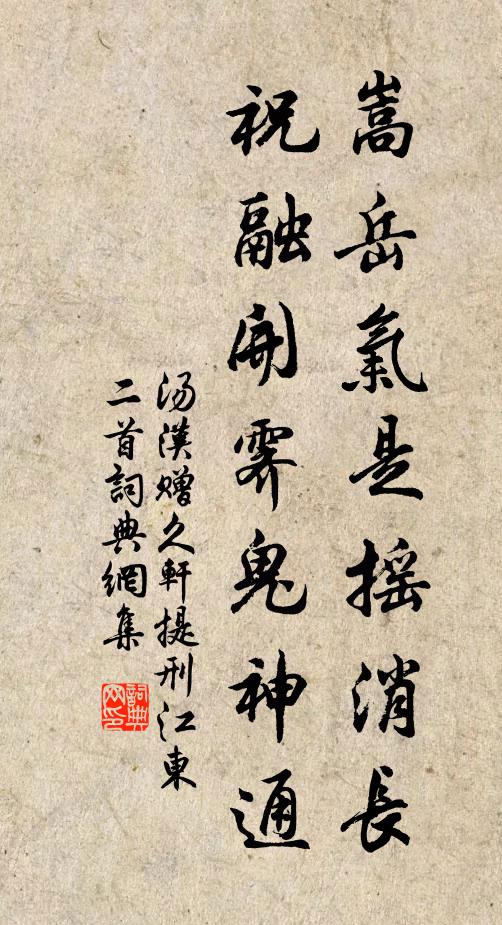 嵩岳氣是摇消長
祝融開霽鬼神通
汤漢赠久軒提刑江東
二首詞典網集
詞典
网印